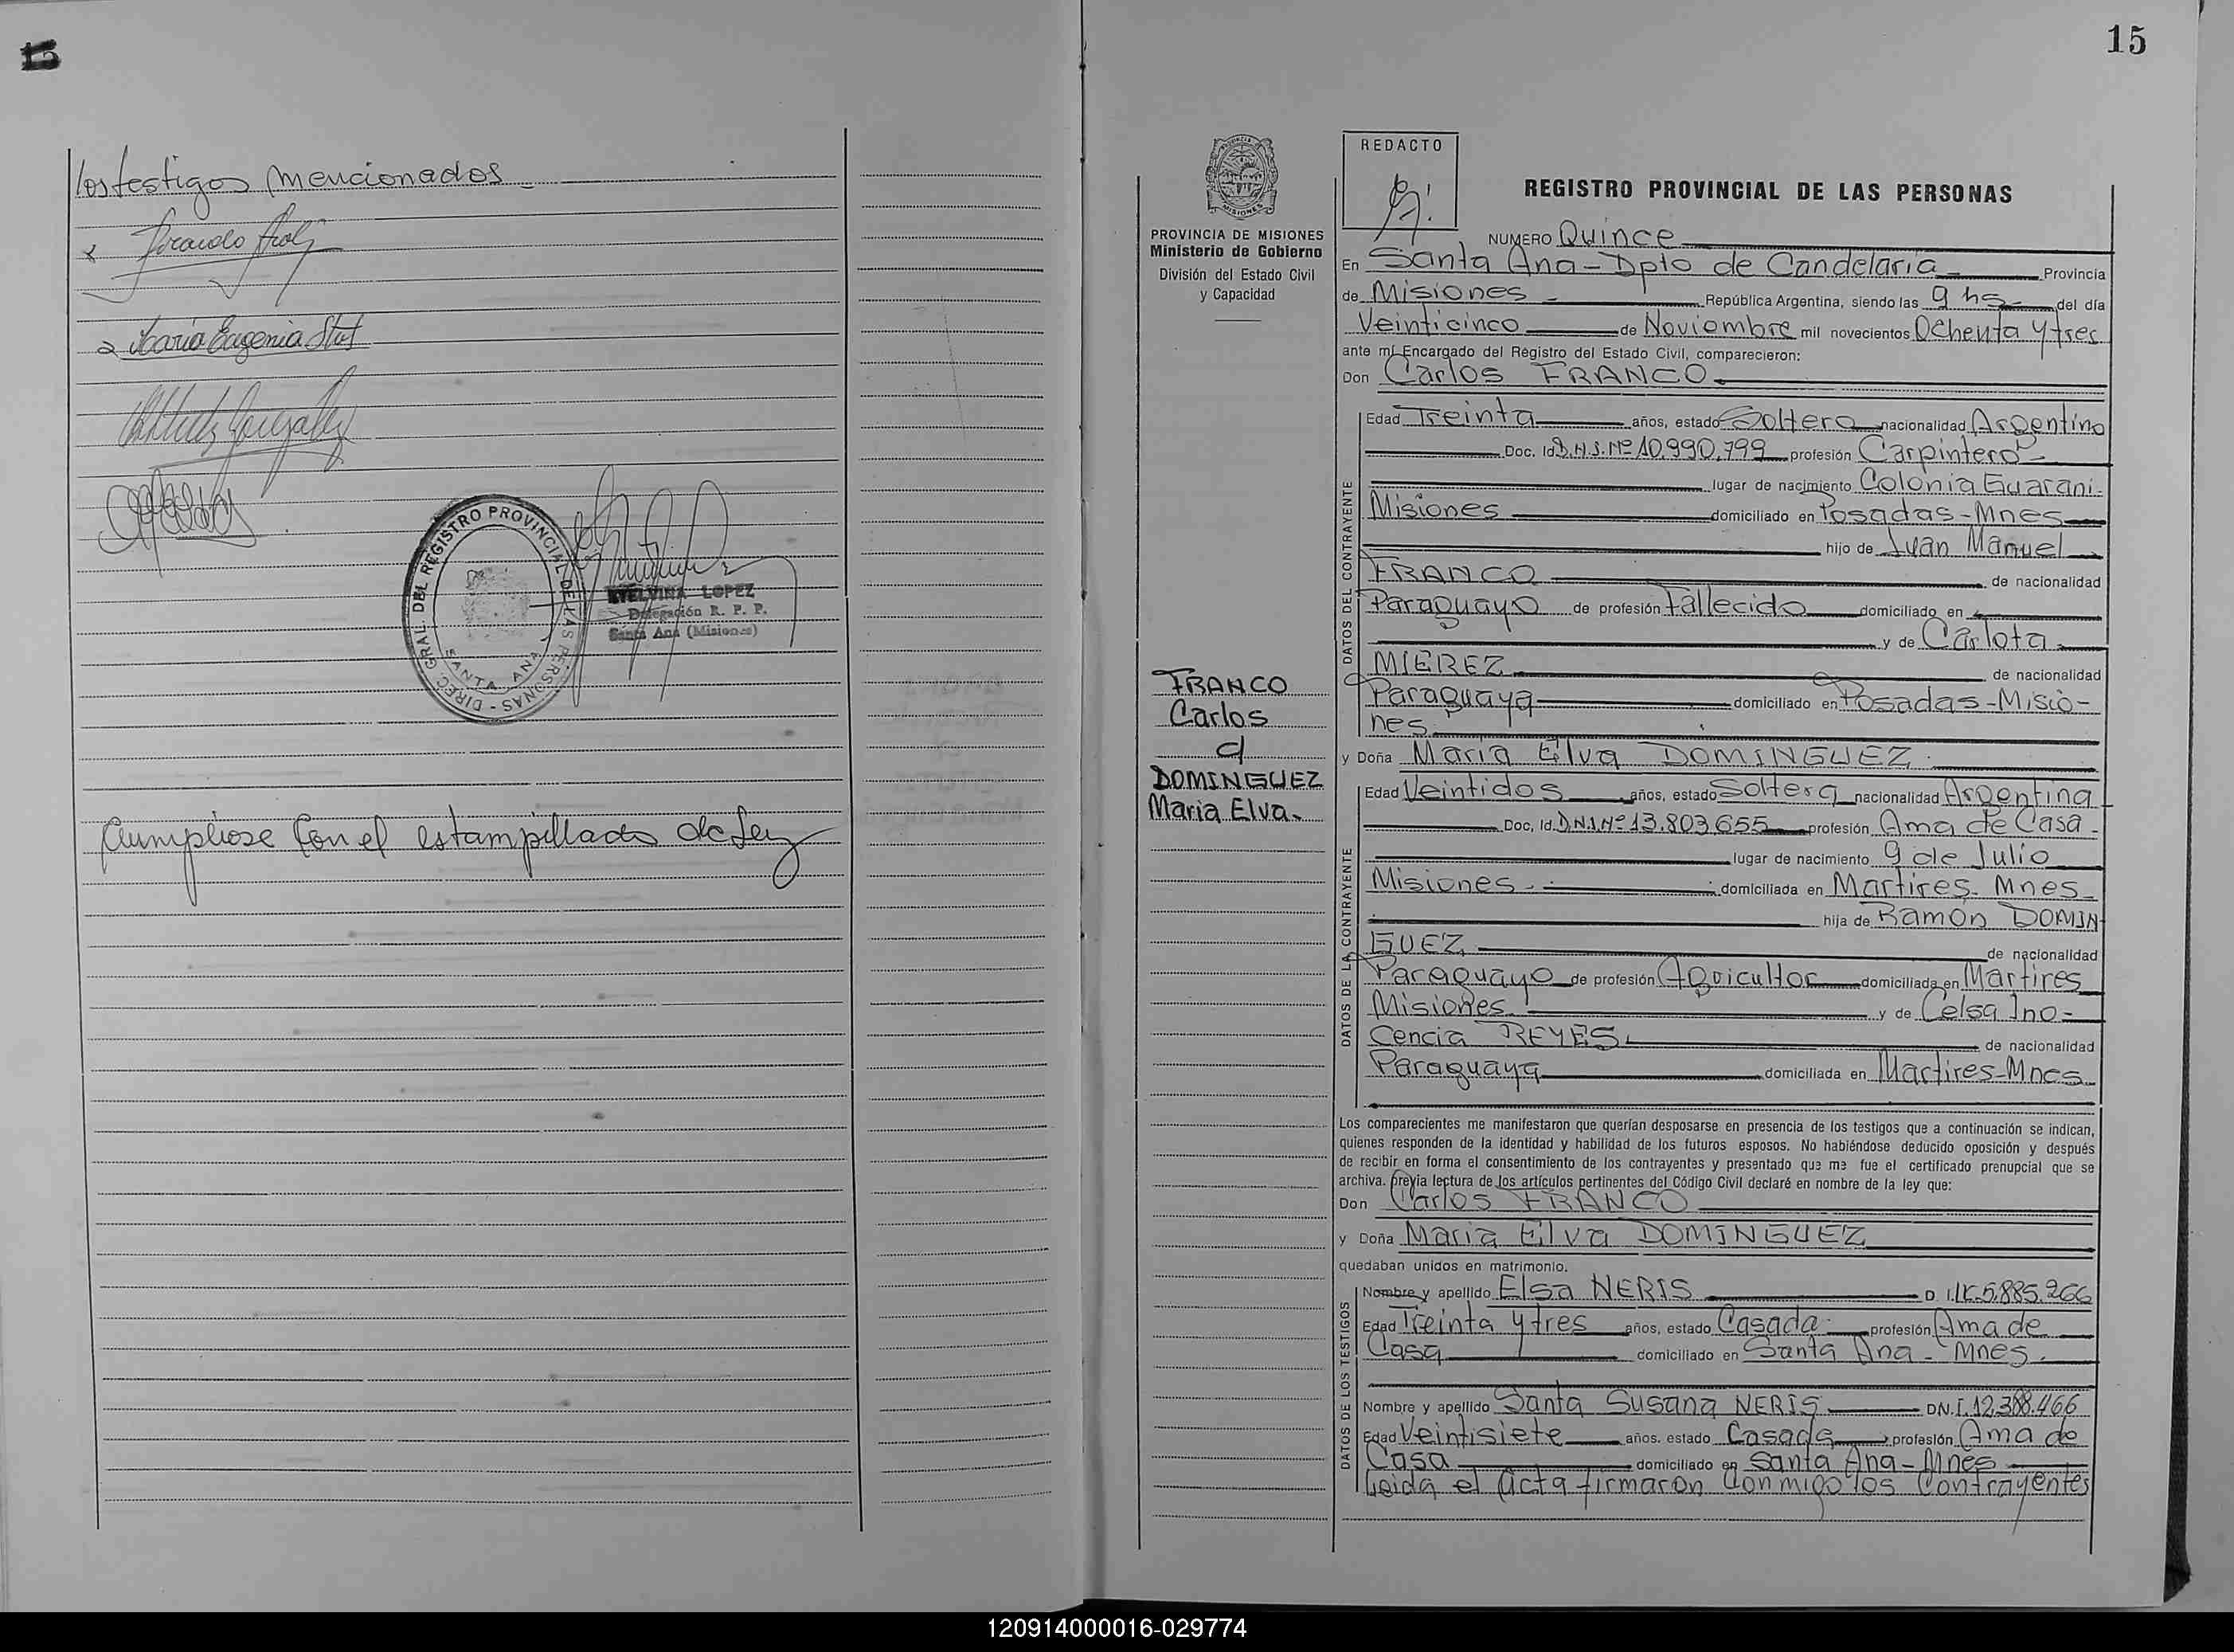 los testigos mencionados
Maria Eugenia
DIREC. GRAL. DEL REGISTRO PROVINCIAL DE LAS PERSONAS -
SANTA ANA
ETELVINA LOPEZ
Delegación R. P. P.
Santa Ana (Misiones)
Cumpliose con el estampillado de Ley
15
PROVINCIA DE MISIONES
Ministerio de Gobierno
División del Estado Civil
y Capacidad
FRANCO
Carlos
c/
DOMINGUEZ
Maria Elva.
REDACTO
REGISTRO PROVINCIAL DE LAS PERSONAS
NUMERO Quince
En Santa Ana - Dpto de Candelaria Provincia
de Misiones - República Argentina, siendo las 9 hs del día
Veinticinco de Noviembre mil novecientos Ochenta y tres
ante mí Encargado del Registro del Estado Civil, comparecieron:
Don Carlos FRANCO
DATOS DEL CONTRAYENTE
Edad Treinta años, estado Soltero nacionalidad Argentino
Doc. Id D.N.I. Nº 10.990.799 profesión Carpintero
lugar de nacimiento Colonia Guarani -
Misiones domiciliado en Posadas - Mnes
hijo de Juan Manuel
FRANCO de nacionalidad
Paraguayo de profesión Fallecido domiciliado en
y de Carlota
MIEREZ de nacionalidad
Paraguaya domiciliado en Posadas - Misio-
nes.
y Doña Maria Elva DOMINGUEZ.
DATOS DE LA CONTRAYENTE
Edad Veintidos años, estado Soltera nacionalidad Argentina
Doc, Id. D.N.I. Nº 13.803.655 profesión Ama de Casa -
lugar de nacimiento 9 de Julio
Misiones. domiciliada en Martires. Mnes
hija de Ramón DOMIN
GUEZ, de nacionalidad
Paraguayo de profesión Agricultor domiciliada en Martires
Misiones. y de Celsa Ino-
cencia REYES de nacionalidad
Paraguaya domiciliada en Martires - Mnes
Los comparecientes me manifestaron que querían desposarse en presencia de los testigos que a continuación se indican,
quienes responden de la identidad y habilidad de los futuros esposos. No habiéndose deducido oposición y después
de recibir en forma el consentimiento de los contrayentes y presentado que me fue el certificado prenupcial que se
archiva. previa lectura de los artículos pertinentes del Código Civil declaré en nombre de la ley que:
Don Carlos FRANCO
y Doña Maria Elva DOMINGUEZ
quedaban unidos en matrimonio.
DATOS DE LOS TESTIGOS
Nombre y apellido Elsa NERIS D. I. LC. 5.885.266
Edad Treinta y tres años, estado Casada profesión Ama de
Casa domiciliado en Santa Ana - Mnes.
Nombre y apellido Santa Susana NERIS DN.I. 12.388.466
Edad Veintisiete años. estado Casada profesión Ama de
Casa domiciliado en Santa Ana - Mnes
Leida el Acta firmaron Conmigo los Contrayentes
120914000016-029774